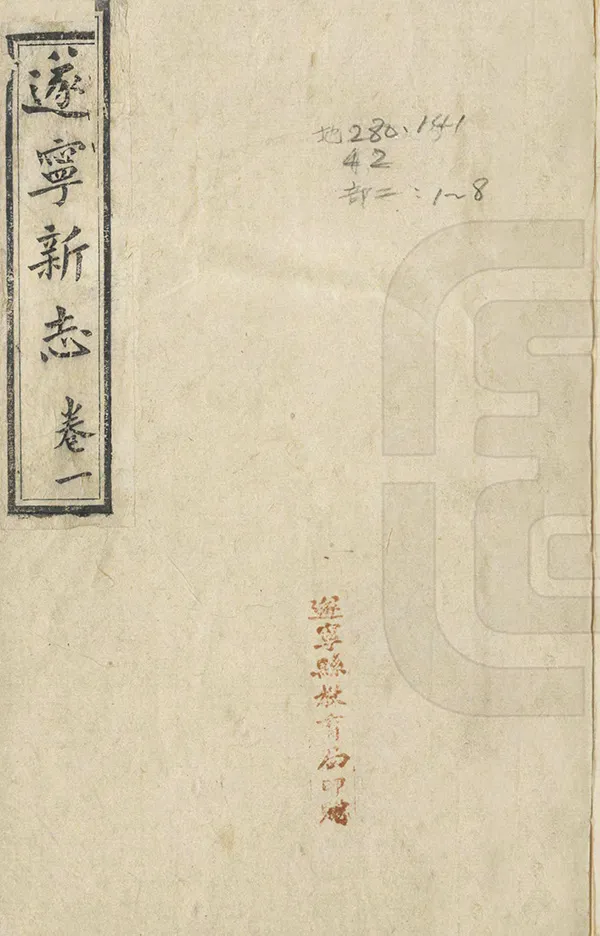 遂寧新志 卷一
地280.141
42
部二：1~8
遂寧縣教育局印贈